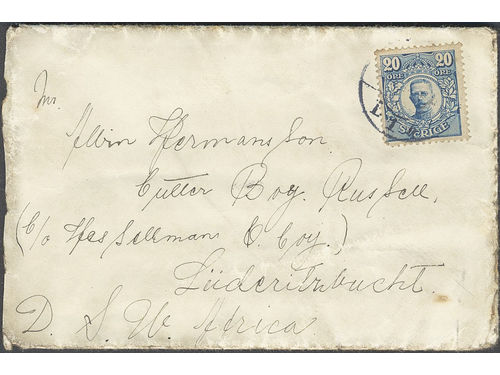 20 20
ÖRE ÖRE
SVERIGE
Mr.
Albin Hermansson
Cutter Boy. Russell,
(C/o Hasselmans C. Coy.)
Lüderitzbucht.
D. S. W. Africa